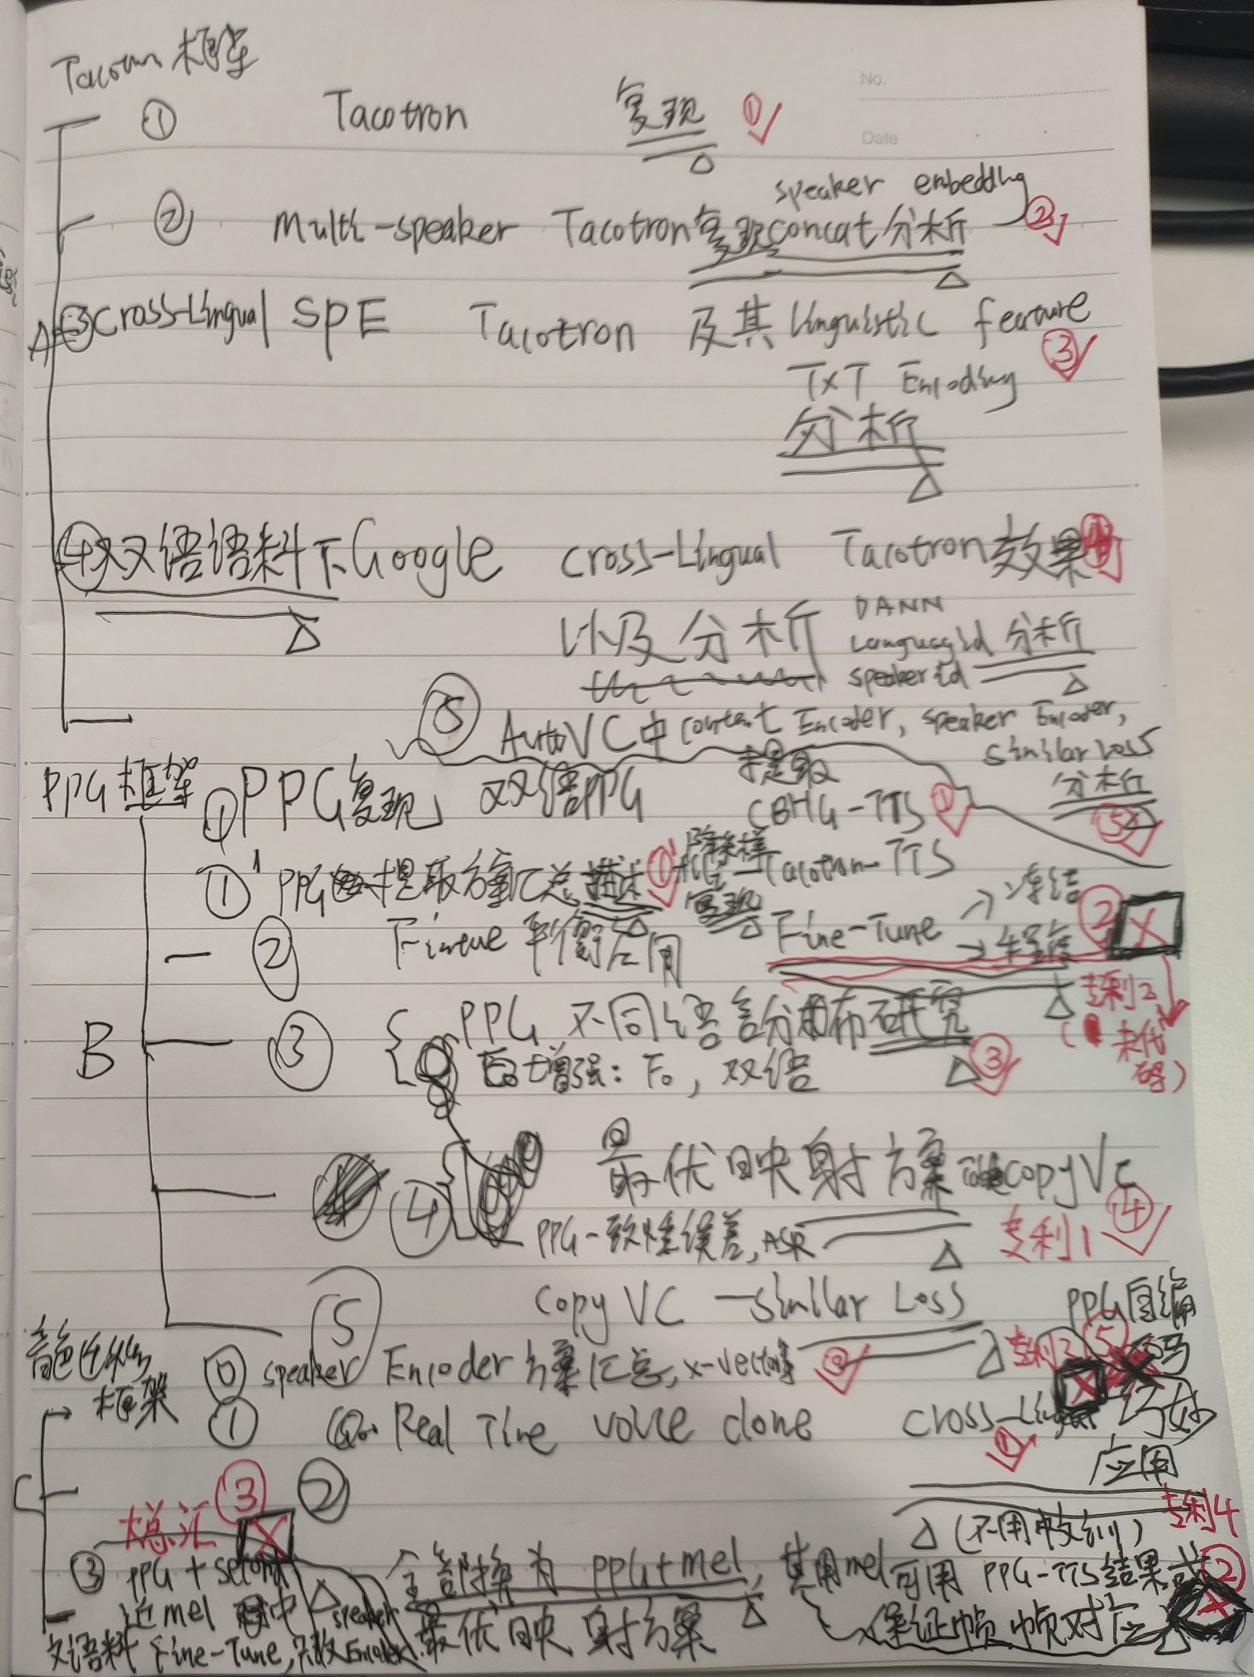 Tacotron 框架
No.
Date
① Tacotron 复现 ①
speaker embedding
② Multi-speaker Tacotron 复现 concat 分析 ②
A ③ Cross-Lingual SPE Tacotron 及其 linguistic feature
③
TXT Encoding
分析
④ 双语语料下 Google cross-Lingual Tacotron 效果
以及分析 DANN
Language id 分析
speaker id
⑤ AutoVC 中 Content Encoder, speaker Encoder,
similar loss
分析
⑤
PPG 框架 ① PPG 复现 双语PPG 提取
CBHG-TTS ①
①' PPG 提取方案汇总描述 ① 降采样
Tacotron-TTS
复现
② 平衡应用 Fine-Tune → 冻结 ②
专利2
(未代码)
B ③ PPG 不同语言分布研究
增强: F0, 双语 ③
④ 最优映射方案 copy VC
PPG 一致性误差, ASR 专利1 ④
⑤ copy VC — similar Loss
PPG 自编码
⑤
音色 框架
⓪ speaker Encoder 方案汇总, x-vector等
① Real Time voice clone cross-Lingual 巧妙
应用
C
专利4
大总汇 ③ ②
(不用 )
③ PPG + 全部换为 PPG+mel, 其用mel可用 PPG-TTS结果 ②
近 mel 中 speaker 最优映射方案 保证帧帧对应
文语料 Fine-Tune, Encoder